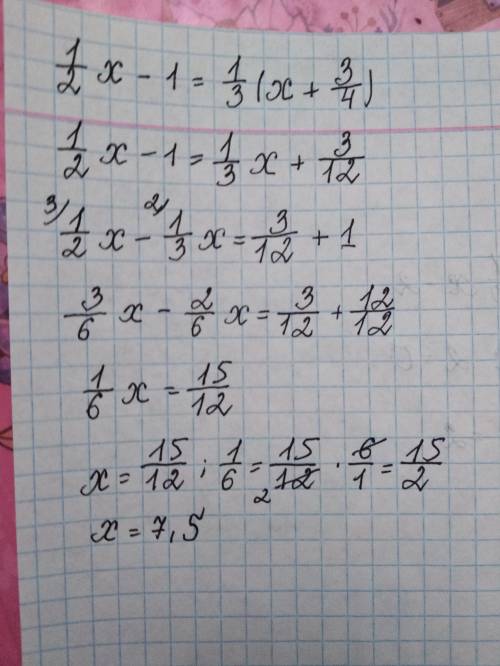 1/2 x - 1 = 1/3 (x + 3/4)
1/2 x - 1 = 1/3 x + 3/12
3/ 1/2 x - 2/ 1/3 x = 3/12 + 1
3/6 x - 2/6 x = 3/12 + 12/12
1/6 x = 15/12
x = 15/12 : 1/6 = 15/12 2 · 6/1 = 15/2
x = 7,5